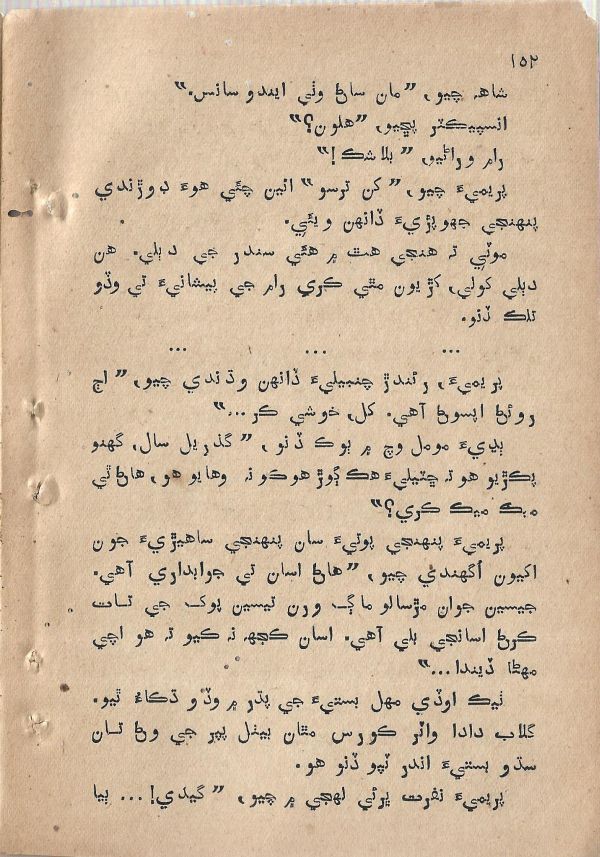 ١٥٢
شاهہ چيو، ”مان ساڻ وٺي ايندو سانس.“
انسپيڪٽر پڇيو، ”هلون؟“
رام وراڻيو، ”بلاشڪ!“
پريميءَ چيو، ”کن ترسو“ ائين چئي هوءَ ڊوڙندي
پنهنجي جهوپڙيءَ ڏانهن ويئي.
موٽي تہ هنجي هٿ ۾ هئي سندر جي دٻلي. هن
دٻلي کولي، کڙيون مٿي ڪري رام جي پيشانيءَ تي وڏو
تلڪ ڏنو.
... ... ...
پريميءَ، رئندڙ چنبيليءَ ڏانهن وڌندي چيو، ”اڄ
روئڻ اپسوڻ آهي. کل، خوشي ڪر...“
ٻڍيءَ مومل وچ ۾ ٻوڪ ڏنو، ”گذريل سال، گهنو
پڪڙيو هو تہ چنبيليءَ هڪ ڳوڙهو ڪونہ وهايو هو، هاڻ ٿي
مڪ ميڪ ڪري؟“
پريميءَ پنهنجي پوتيءَ سان پنهنجي ساهيڙيءَ جون
اکيون اُگهندي چيو، ”هاڻ اسان تي جوابداري آهي.
جيسين جوان مڙسالو ماڳ ورن تيسين پوک جي تات
ڪرڻ اسانجي ٻلي آهي. اسان ڪجهہ نہ ڪيو تہ هو اچي
مهڻا ڏيندا...“
ٺيڪ اوڏي مهل بستيءَ جي پڌر ۾ وڏو ڌڪاءُ ٿيو.
گلاب دادا واٽر ڪورس مٿان بيٺل پپر جي وڻ تان
سڌو بستيءَ اندر ٽپو ڏنو هو.
پريميءَ نفرت ڀرئي لهجي ۾ چيو، ”گيدي!... ٻيا